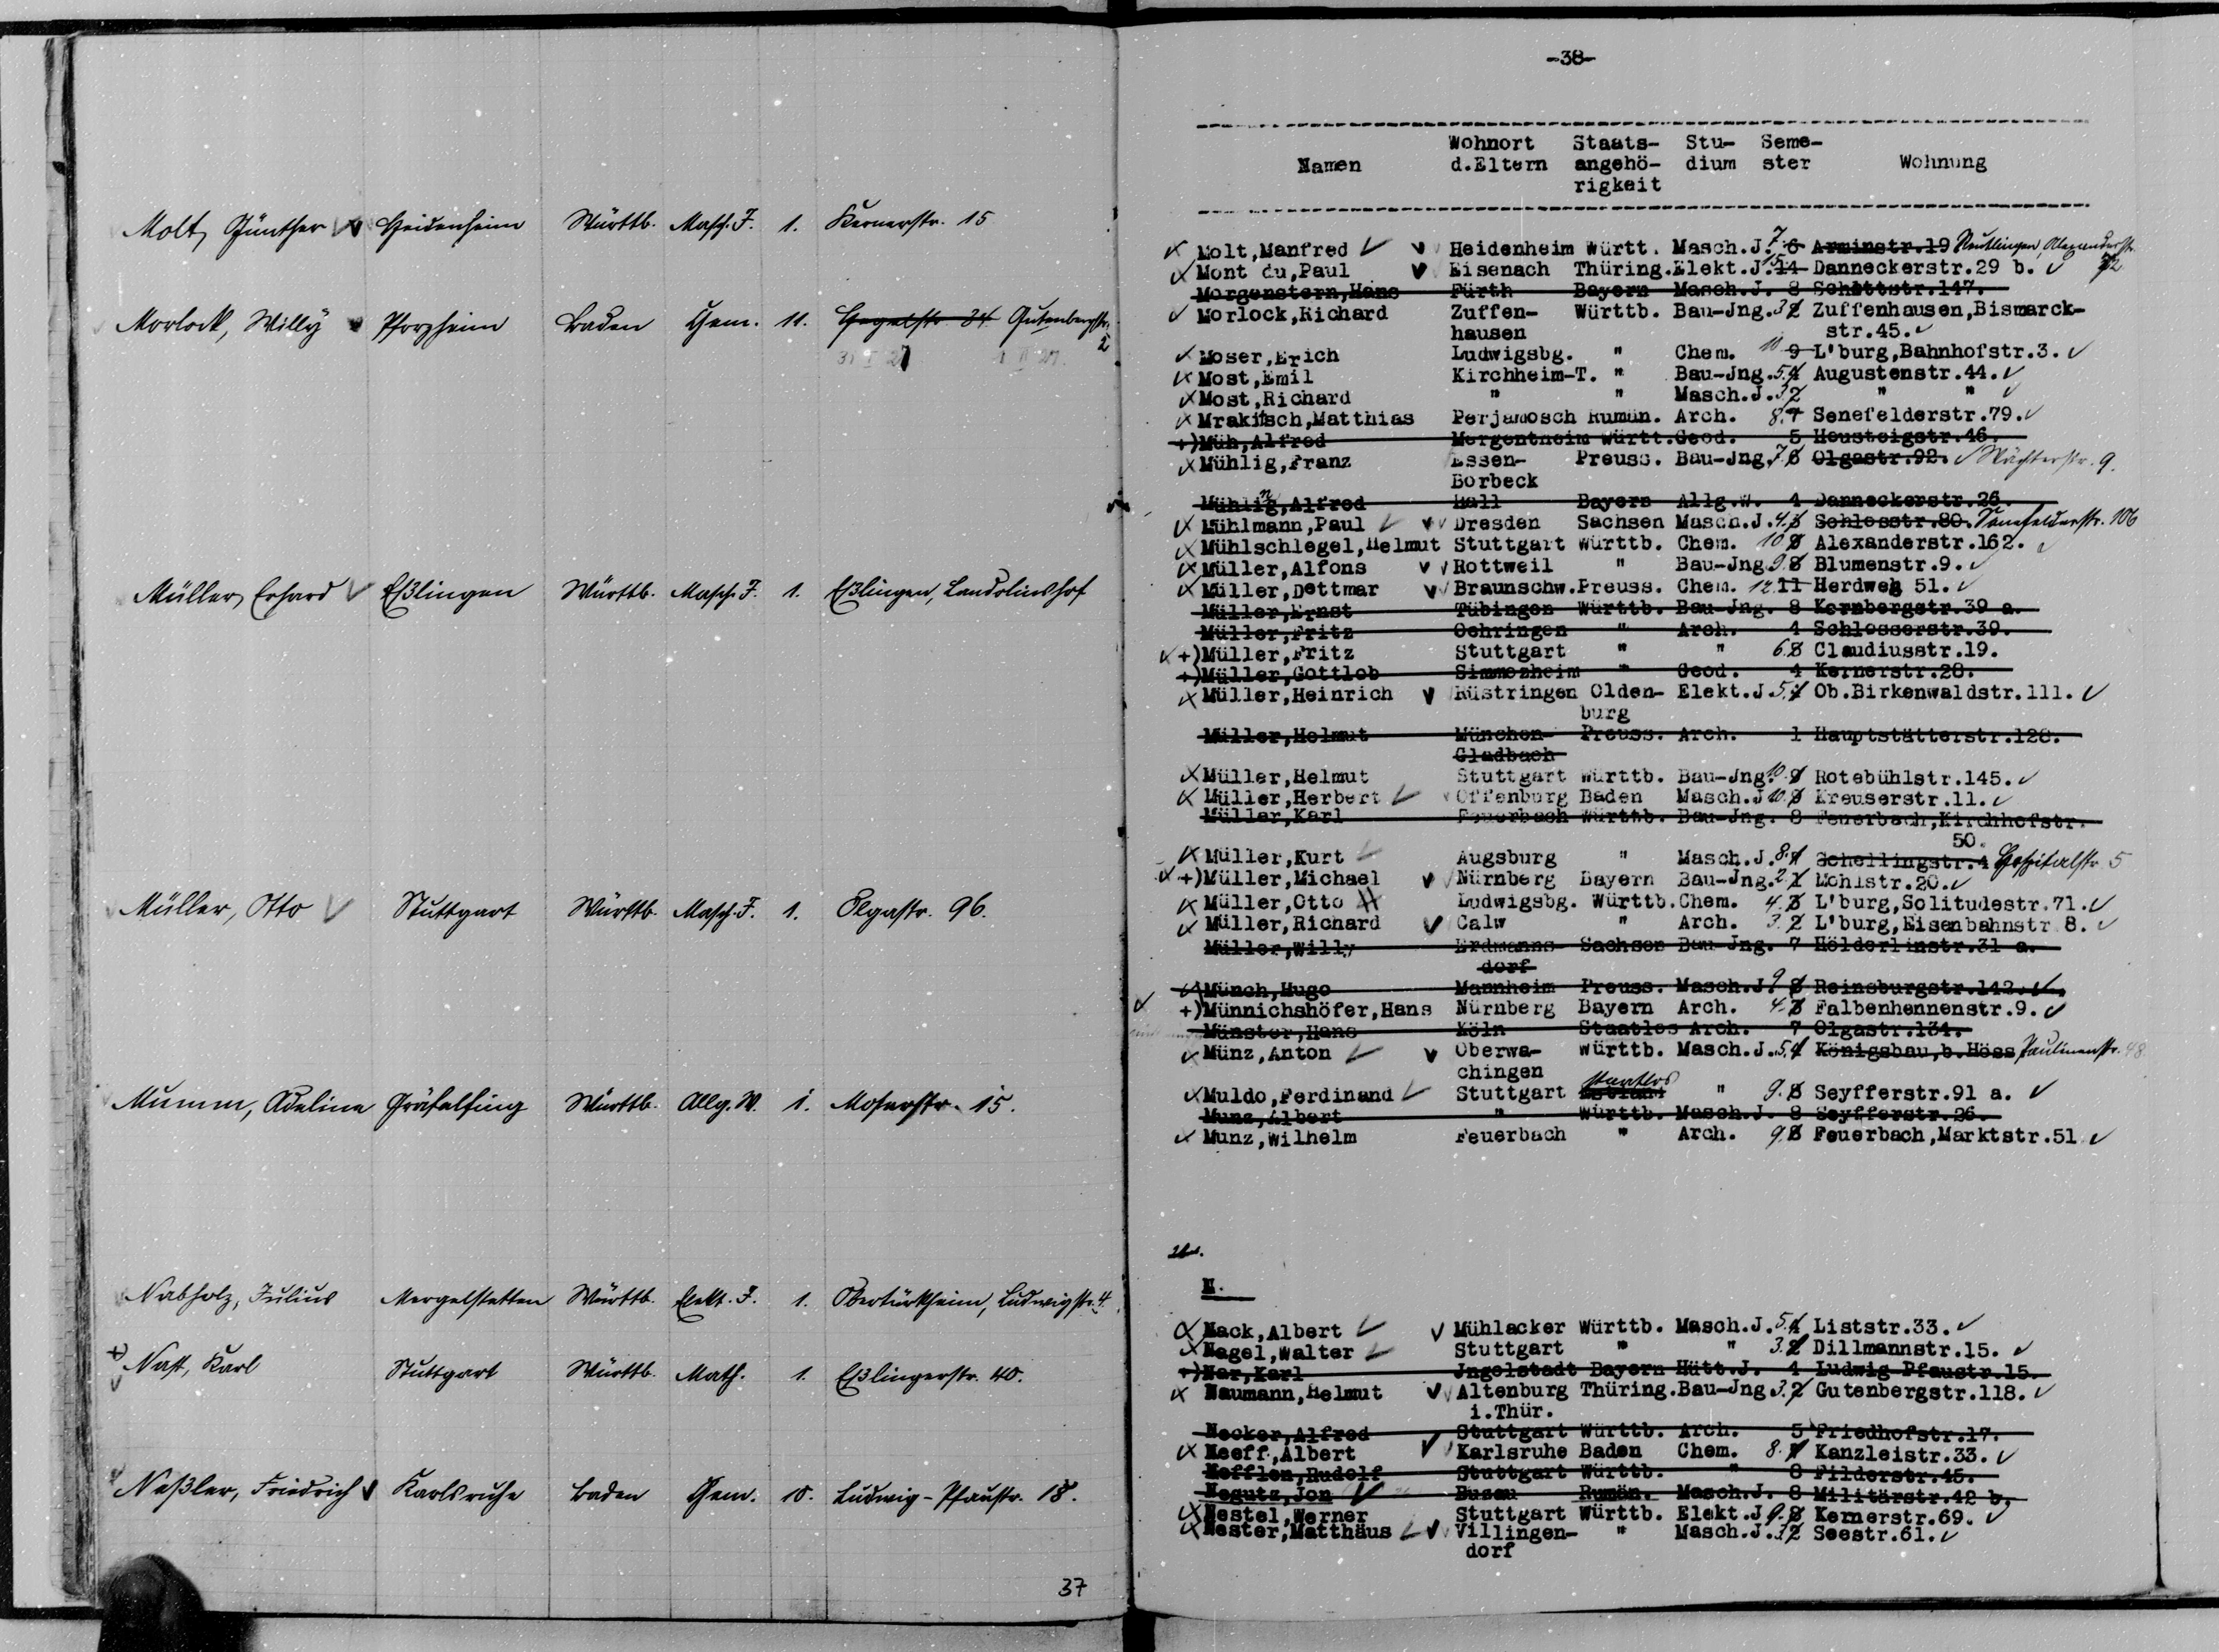 Molt, Günther Heidenheim Württb. Masch. J. 1. Kernerstr. 15
Morlock, Willy Pforzheim Baden Chem. 11. Hegelstr. 34 Gutenbergstr.
2
Müller, Erhard Eßlingen Württb. Masch. J. 1. Eßlingen, Landolinshof
Müller, Otto Stuttgart Württb. Masch. J. 1. Olgastr. 96.
Mumm, Adeline Gräfelfing Württb. Allg. W. 1. Moserstr. 15.
Nabholz, Julius Mergelstetten Württb. Elekt. J. 1. Obertürkheim, Ludwigstr. 4.
+) Nast, Karl Stuttgart Württb. Math. 1. Eßlingerstr. 40.
Naßler, Friedrich Karlsruhe Baden Chem. 10. Ludwig-Pfaustr. 18.
37
-38-
Wohnort Staats- Stu- Seme-
Namen d.Eltern angehö- dium ster Wohnung
rigkeit
Molt,Manfred Heidenheim Württ. Masch.J. 7. 6 Arminstr.19 Reutlingen, Alexanderstr.
Mont du,Paul Eisenach Thüring.Elekt.J. 15. 14 Danneckerstr.29 b. 72
Morgenstern,Hans Fürth Bayern Masch.J. 8 Schüttstr.147.
Morlock,Richard Zuffen- Württb. Bau-Jng. 3. 2 Zuffenhausen,Bismarck-
hausen str.45.
Moser,Erich Ludwigsbg. " Chem. 10 9 L'burg,Bahnhofstr.3.
Most,Emil Kirchheim-T. " Bau-Jng. 5. 4 Augustenstr.44.
Most,Richard " " Masch.J. 3. 2 " "
Mrakitsch,Matthias Perjamosch Rumän. Arch. 8. 7 Senefelderstr.79.
+)Müh,Alfred Mergentheim Württ.Geod. 5 Heusteigstr.46.
Mühlig,Franz Essen- Preuss. Bau-Jng. 7. 6 Olgastr.92. Wächterstr. 9.
Borbeck
Mühling,Alfred Hall Bayern Allg.W. 4 Danneckerstr.26.
Mühlmann,Paul Dresden Sachsen Masch.J. 4. 3 Schlosstr.80. Senefelderstr. 106
Mühlschlegel,Helmut Stuttgart Württb. Chem. 10 9 Alexanderstr.162.
Müller,Alfons Rottweil " Bau-Jng 9. 8 Blumenstr.9.
Müller,Dettmar Braunschw.Preuss. Chem. 12. 11 Herdweg 51.
Müller,Ernst Tübingen Württb. Bau-Jng. 8 Kornbergstr.39 a.
Müller,Fritz Oehringen " Arch. 4 Schlosserstr.39.
+)Müller,Fritz Stuttgart " " 6. 8 Claudiusstr.19.
+)Müller,Gottlob Simmozheim " Geod. 4 Kernerstr.28.
Müller,Heinrich Rüstringen Olden- Elekt.J. 5. 4 Ob.Birkenwaldstr.111.
burg
Müller,Helmut München- Preuss. Arch. 1 Hauptstätterstr.128.
Gladbach
Müller,Helmut Stuttgart Württb. Bau-Jng. 10. 9 Rotebühlstr.145.
Müller,Herbert Offenburg Baden Masch.J 10. 9 Kreuserstr.11.
Müller,Karl Feuerbach Württb. Bau-Jng. 8 Feuerbach,Kirchhofstr.
50.
Müller,Kurt Augsburg " Masch.J. 8. 7 Schellingstr.4 Hospitalstr. 5
+)Müller,Michael Nürnberg Bayern Bau-Jng. 2. 1 Mohlstr.20.
Müller,Otto Ludwigsbg. Württb.Chem. 4. 3 L'burg,Solitudestr.71.
Müller,Richard Calw " Arch. 3. 2 L'burg,Eisenbahnstr 8.
Müller,Willy Erdmanns- Sachsen Bau-Jng. 7 Hölderlinstr.31 a.
dorf
Münch,Hugo Mannheim Preuss. Masch.J. 9 8 Reinsburgstr.142.
+)Münnichshöfer,Hans Nürnberg Bayern Arch. 4. 3 Falbenhennenstr.9.
Münster,Hans Köln Staatlos Arch. 7 Olgastr.134.
Münz,Anton Oberwa- Württb. Masch.J. 5. 4 Königsbau,b.Höss Paulinenstr. 48
chingen
Muldo,Ferdinand Stuttgart Estland staatlos " 9. 8 Seyfferstr.91 a.
Munz,Albert " Württb. Masch.J. 8 Seyfferstr.26.
Munz,Wilhelm Feuerbach " Arch. 9. 8 Feuerbach,Marktstr.51
N.
Nack,Albert Mühlacker Württb. Masch.J. 5. 4 Liststr.33.
Nagel,Walter Stuttgart " " 3. 2 Dillmannstr.15.
+)Nar,Karl Jngolstadt Bayern Hütt.J. 4 Ludwig Pfaustr.15.
Naumann,Helmut Altenburg Thüring.Bau-Jng 3. 2 Gutenbergstr.118.
i.Thür.
Necker,Alfred Stuttgart Württb. Arch. 5 Friedhofstr.17.
Neeff,Albert Karlsruhe Baden Chem. 8. 7 Kanzleistr.33.
Nefflen,Rudolf Stuttgart Württb. " 8 Filderstr.45.
Negutz,Jon Buzau Rumän. Masch.J. 8 Militärstr.42 b.
Nestel,Werner Stuttgart Württb. Elekt.J 9. 8 Kernerstr.69.
Nester,Matthäus Villingen- " Masch.J. 3. 2 Seestr.61.
dorf